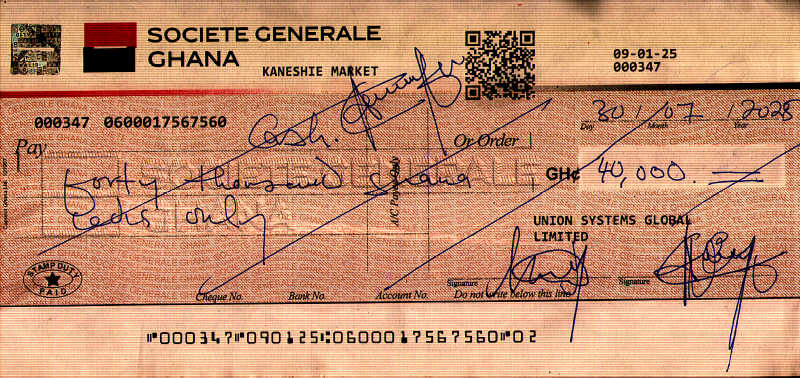 SOCIETE GENERALE
GHANA
KANESHIE MARKET
09-01-25
000347
30 / 07 / 2028
Day Month Year
000347 0600017567560
Cash.
Pay
Or Order
forty thousand Ghana
cedis only
A/C Payee Only
GH¢ 40,000.
UNION SYSTEMS GLOBAL
LIMITED
STAMP DUTY
PAID
Signature
Signature
Cheque No. Bank No. Account No. Do not write below this line
⑈000347⑈090125⑆0600017567560⑈02